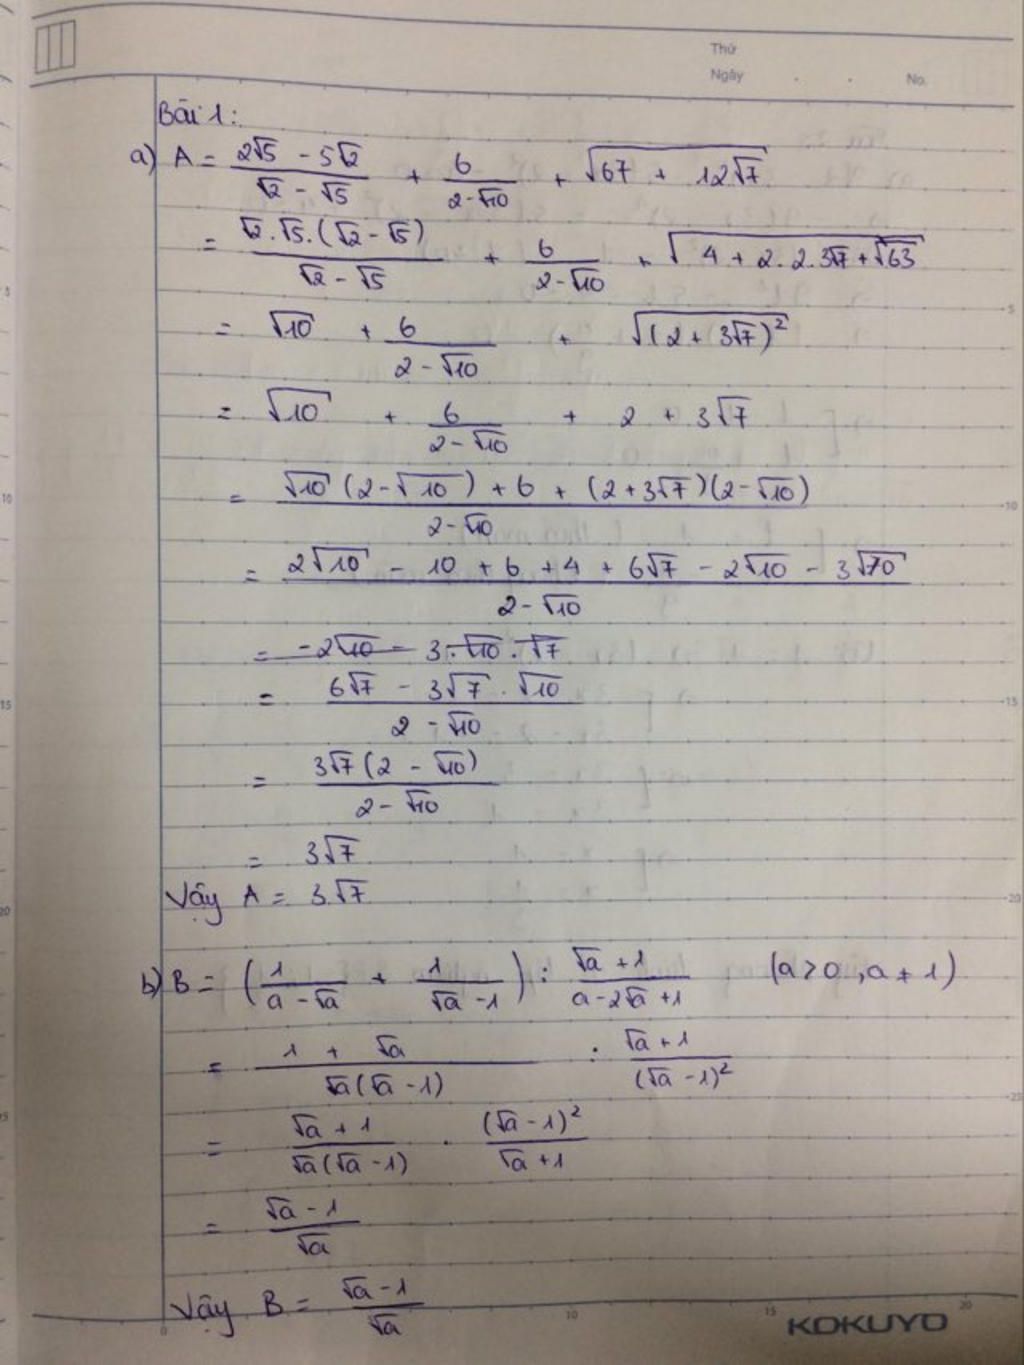 Thứ
Ngày . . No.
Bài 1:
a) A = (2√5 - 5√2)/(√2 - √5) + 6/(2-√10) + √(67 + 12√7)
= (√2.√5.(√2-√5))/(√2-√5) + 6/(2-√10) + √(4 + 2.2.3√7 + √63)
= √10 + 6/(2-√10) + √((2+3√7)²)
= √10 + 6/(2-√10) + 2 + 3√7
= (√10(2-√10) + 6 + (2+3√7)(2-√10))/(2-√10)
= (2√10 - 10 + 6 + 4 + 6√7 - 2√10 - 3√70)/(2-√10)
= -2√10 - 3.√10.√7
= (6√7 - 3√7.√10)/(2-√10)
= (3√7(2-√10))/(2-√10)
= 3√7
Vậy A = 3√7
b) B = (1/(a-√a) + 1/(√a-1)) : (√a+1)/(a-2√a+1) (a>0, a≠1)
= (1+√a)/(√a(√a-1)) : (√a+1)/(√a-1)²
= (√a+1)/(√a(√a-1)) . (√a-1)²/(√a+1)
= (√a-1)/√a
Vậy B = (√a-1)/√a
0 10 15 20
KOKUYO